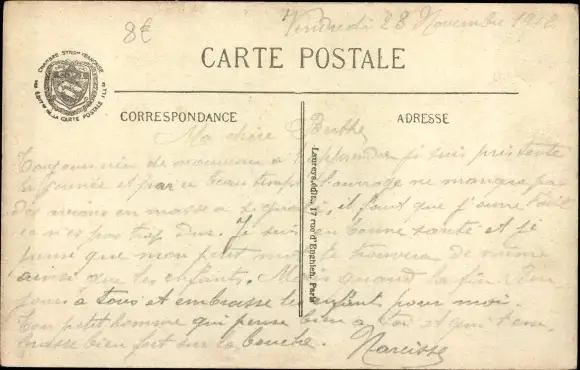 8€
Vendredi 28 Novembre
CARTE POSTALE
CHAMBRE SYND^le FRANÇAISE
DE LA CARTE POSTALE ILL^EE
CORRESPONDANCE
ADRESSE
Laureys, édit., 17 rue d'Enghien, Paris
Ma chère Berthe
Toujours rien de nouveau à t'apprendre je suis pris toute
la journée et par ce beau temps l'ouvrage ne manque pas
Des avions en masse il faut que j'ouvre l'œil
ce n'est pas trop Dur. Je suis en bonne santé et je
pense que mon petit mot te trouvera de même
ainsi que les enfants. Mais quand la fin. Bon
jour à tous et embrasse les enfants pour moi.
Ton petit homme qui pense bien à toi et qui t'em
brasse bien fort sur la bouche. Narcisse